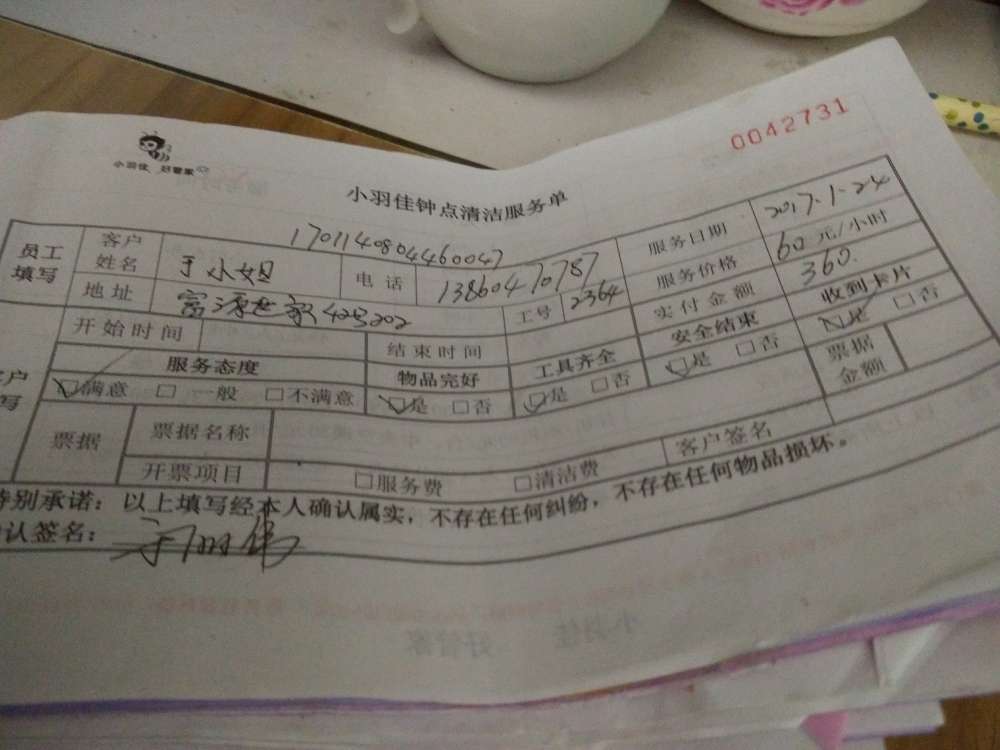 0042731
小羽佳 好管家
小羽佳钟点清洁服务单
1701140804460047
员工填写 客户姓名 于小姐 电话 13860470787 服务日期 2017.1.24
地址 富源世家42号202 工号 2364 服务价格 60元/小时
实付金额 360.
开始时间 结束时间 安全结束 收到卡片
服务态度 物品完好 工具齐全 是 否 是 否
满意 一般 不满意 是 否 是 否 票据金额
票据 票据名称 客户签名
开票项目 服务费 清洁费
特别承诺：以上填写经本人确认属实，不存在任何纠纷，不存在任何物品损坏。
认签名：
小羽佳 好管家